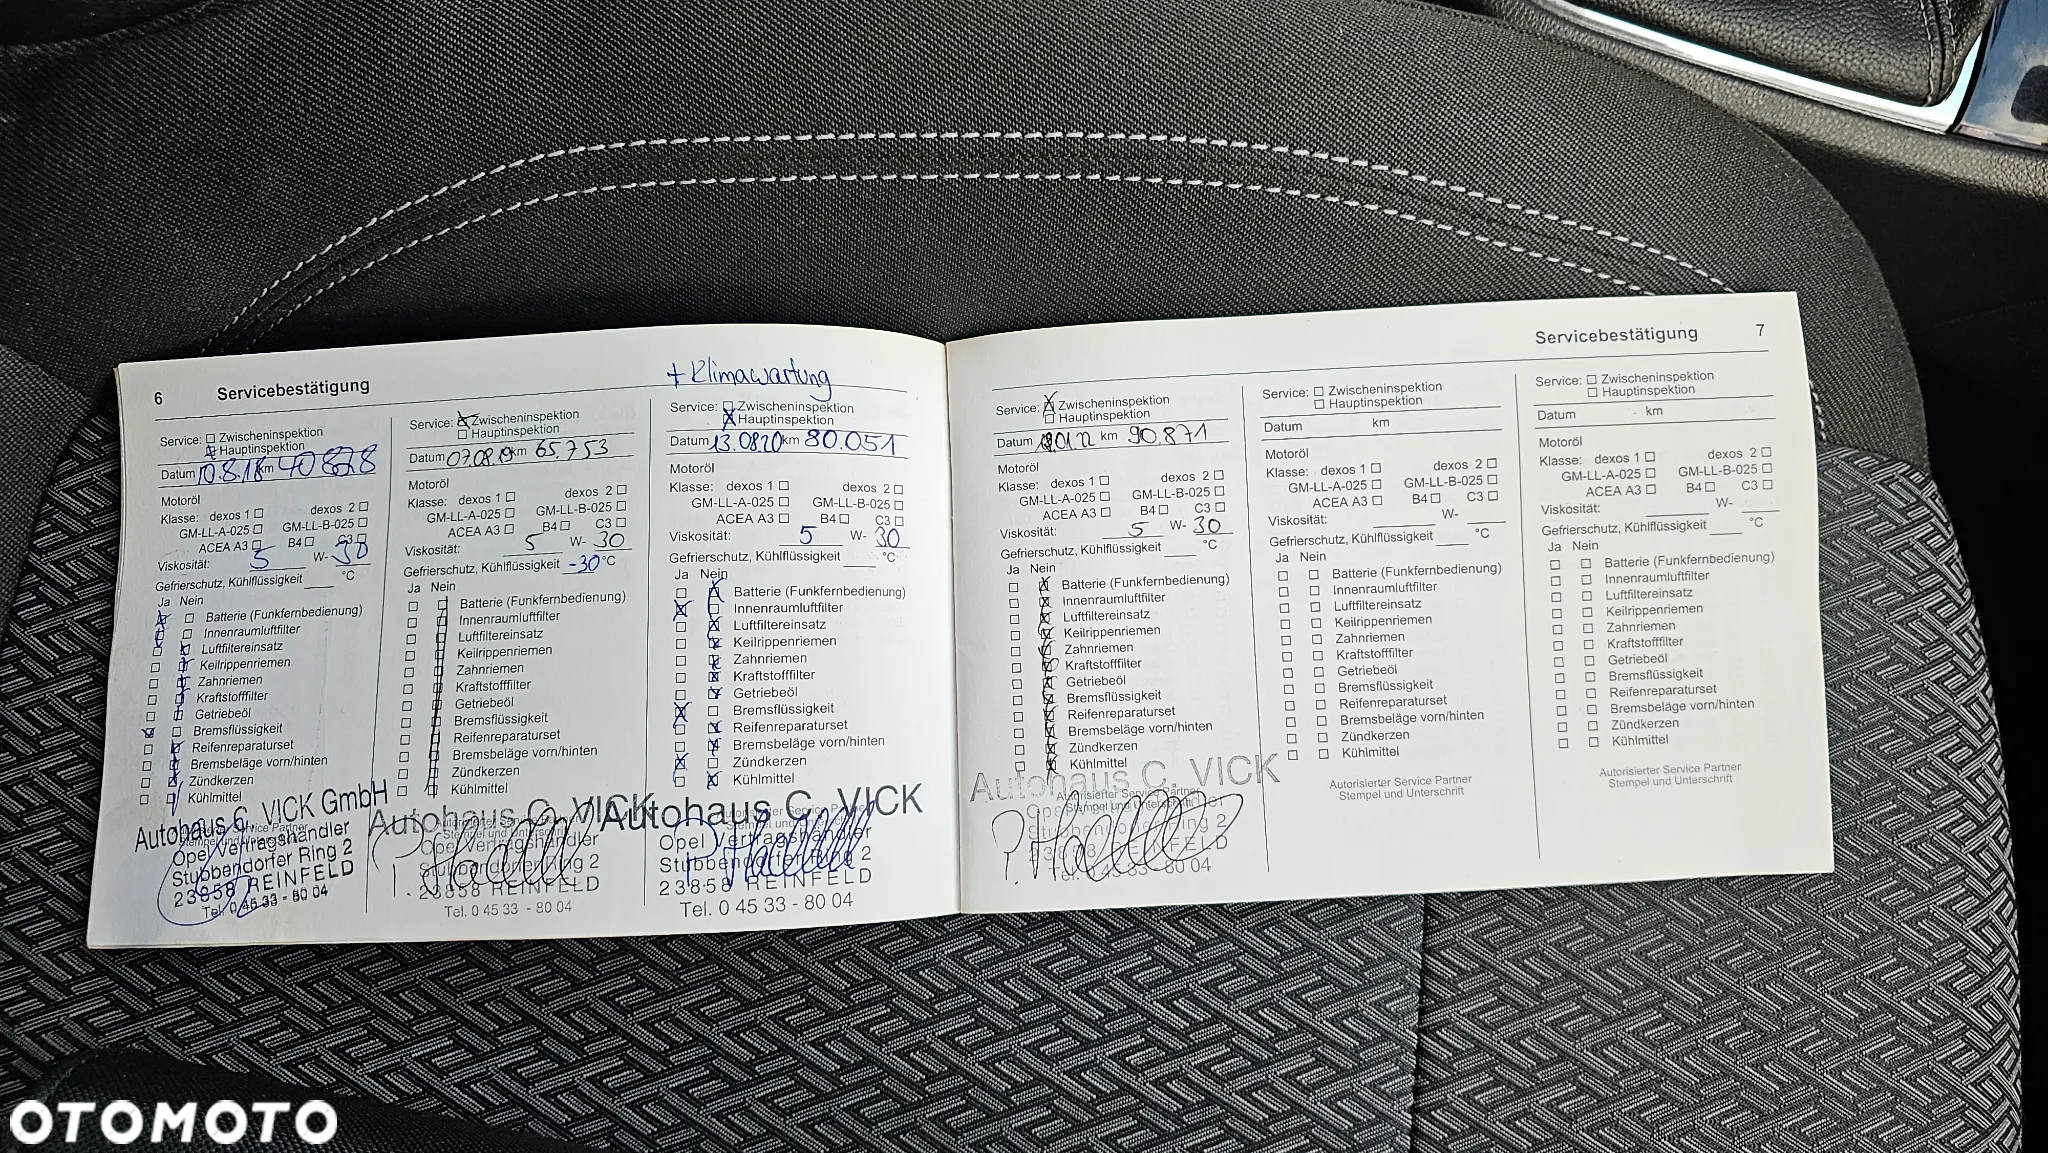 6 Servicebestätigung
Service: Zwischeninspektion
Hauptinspektion
Datum 10.8.18 km 40828
Motoröl
Klasse: dexos 1 dexos 2
GM-LL-A-025 GM-LL-B-025
ACEA A3 B4 C3
Viskosität: 5 W- 30
Gefrierschutz, Kühlflüssigkeit °C
Ja Nein
Batterie (Funkfernbedienung)
Innenraumluftfilter
Luftfiltereinsatz
Keilrippenriemen
Zahnriemen
Kraftstofffilter
Getriebeöl
Bremsflüssigkeit
Reifenreparaturset
Bremsbeläge vorn/hinten
Zündkerzen
Kühlmittel
Autohaus C. VICK GmbH
Opel Vertragshändler
Stubbendorfer Ring 2
23858 REINFELD
Tel. 0 45 33 - 80 04
Service: Zwischeninspektion
Hauptinspektion
Datum 07.08.19 km 65.753
Motoröl
Klasse: dexos 1 dexos 2
GM-LL-A-025 GM-LL-B-025
ACEA A3 B4 C3
Viskosität: 5 W- 30
Gefrierschutz, Kühlflüssigkeit -30 °C
Ja Nein
Batterie (Funkfernbedienung)
Innenraumluftfilter
Luftfiltereinsatz
Keilrippenriemen
Zahnriemen
Kraftstofffilter
Getriebeöl
Bremsflüssigkeit
Reifenreparaturset
Bremsbeläge vorn/hinten
Zündkerzen
Kühlmittel
Autohaus C. VICK
Opel Vertragshändler
Stubbendorfer Ring 2
23858 REINFELD
Tel. 0 45 33 - 80 04
+ Klimawartung
Service: Zwischeninspektion
Hauptinspektion
Datum 13.08.20 km 80.051
Motoröl
Klasse: dexos 1 dexos 2
GM-LL-A-025 GM-LL-B-025
ACEA A3 B4 C3
Viskosität: 5 W- 30
Gefrierschutz, Kühlflüssigkeit °C
Ja Nein
Batterie (Funkfernbedienung)
Innenraumluftfilter
Luftfiltereinsatz
Keilrippenriemen
Zahnriemen
Kraftstofffilter
Getriebeöl
Bremsflüssigkeit
Reifenreparaturset
Bremsbeläge vorn/hinten
Zündkerzen
Kühlmittel
Autohaus C. VICK
Opel Vertragshändler
Stubbendorfer Ring 2
23858 REINFELD
Tel. 0 45 33 - 80 04
Servicebestätigung 7
Service: Zwischeninspektion
Hauptinspektion
Datum 01.22 km 90.871
Motoröl
Klasse: dexos 1 dexos 2
GM-LL-A-025 GM-LL-B-025
ACEA A3 B4 C3
Viskosität: 5 W- 30
Gefrierschutz, Kühlflüssigkeit °C
Ja Nein
Batterie (Funkfernbedienung)
Innenraumluftfilter
Luftfiltereinsatz
Keilrippenriemen
Zahnriemen
Kraftstofffilter
Getriebeöl
Bremsflüssigkeit
Reifenreparaturset
Bremsbeläge vorn/hinten
Zündkerzen
Kühlmittel
Autohaus C. VICK
Autorisierter Service Partner
Stempel und Unterschrift
Ring 2
23858 REINFELD
Tel. 0 45 33 - 80 04
Service: Zwischeninspektion
Hauptinspektion
Datum km
Motoröl
Klasse: dexos 1 dexos 2
GM-LL-A-025 GM-LL-B-025
ACEA A3 B4 C3
Viskosität: W-
Gefrierschutz, Kühlflüssigkeit °C
Ja Nein
Batterie (Funkfernbedienung)
Innenraumluftfilter
Luftfiltereinsatz
Keilrippenriemen
Zahnriemen
Kraftstofffilter
Getriebeöl
Bremsflüssigkeit
Reifenreparaturset
Bremsbeläge vorn/hinten
Zündkerzen
Kühlmittel
Autorisierter Service Partner
Stempel und Unterschrift
Service: Zwischeninspektion
Hauptinspektion
Datum km
Motoröl
Klasse: dexos 1 dexos 2
GM-LL-A-025 GM-LL-B-025
ACEA A3 B4 C3
Viskosität: W-
Gefrierschutz, Kühlflüssigkeit °C
Ja Nein
Batterie (Funkfernbedienung)
Innenraumluftfilter
Luftfiltereinsatz
Keilrippenriemen
Zahnriemen
Kraftstofffilter
Getriebeöl
Bremsflüssigkeit
Reifenreparaturset
Bremsbeläge vorn/hinten
Zündkerzen
Kühlmittel
Autorisierter Service Partner
Stempel und Unterschrift
OTOMOTO